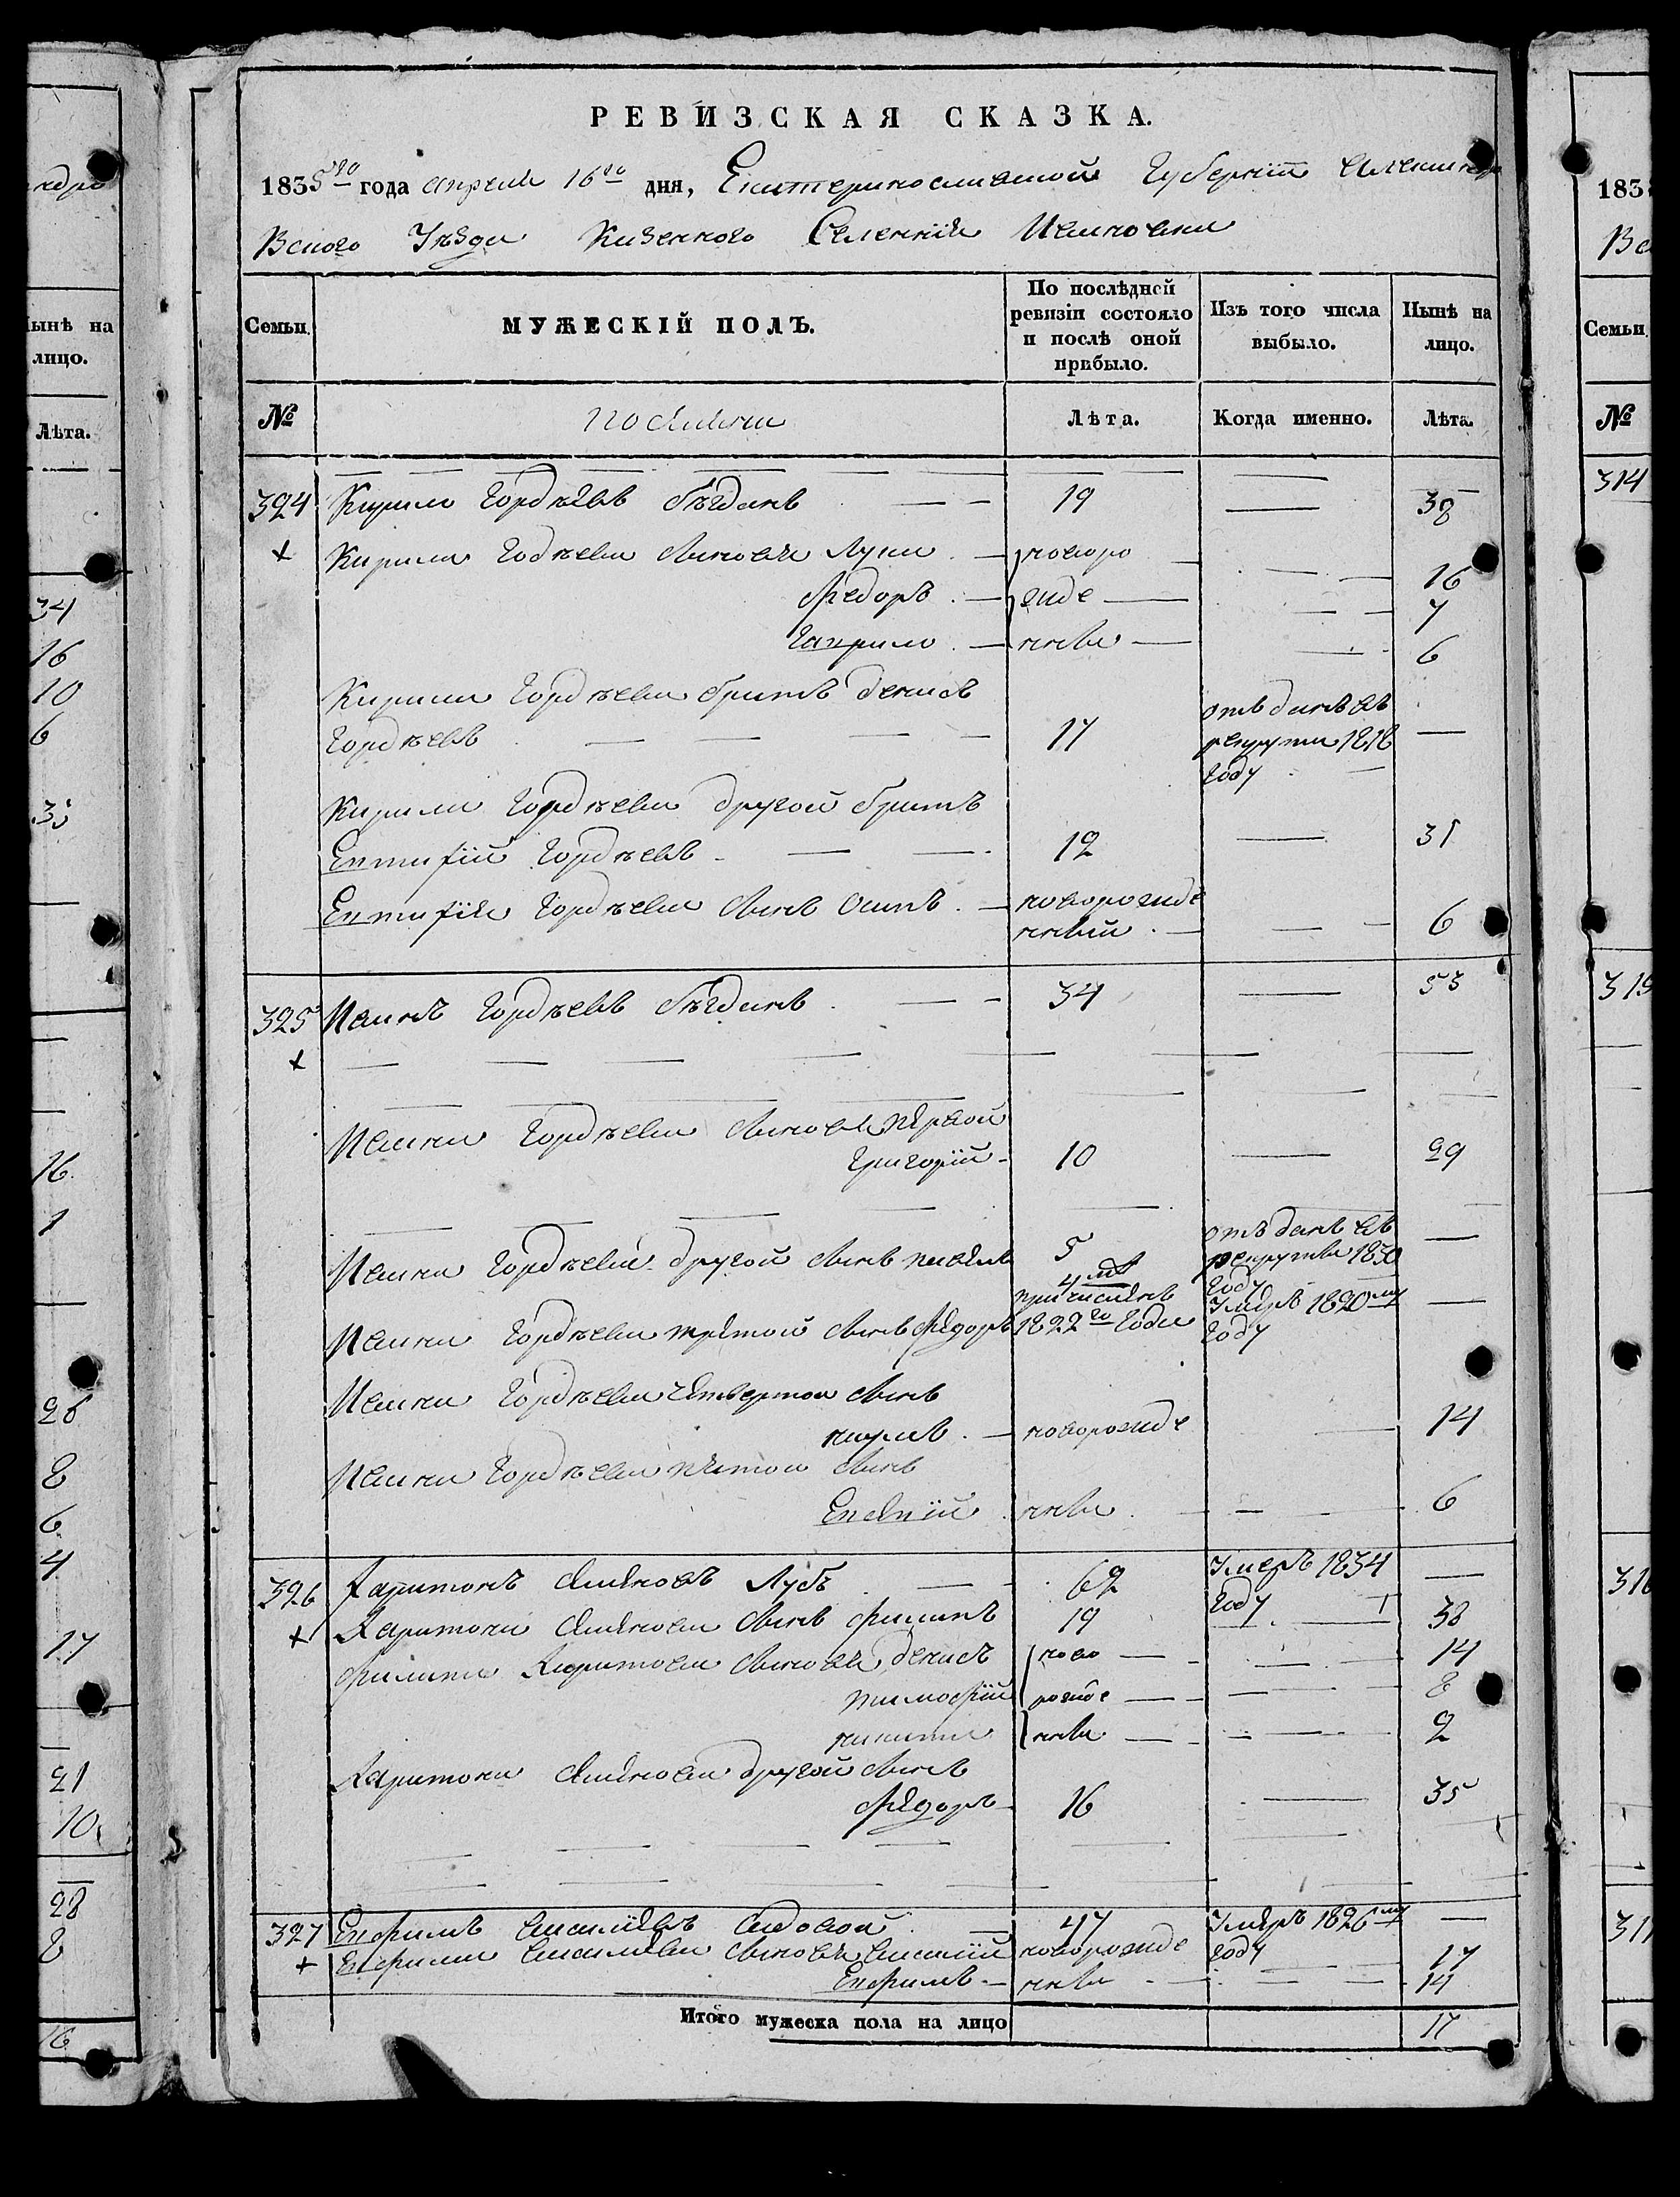 РЕВИЗСКАЯ СКАЗКА.
1835го года апреля 16го дня, Екатеринославской Губернiи
вского Уезда Казенного Селенiя Ивановки
Семьи.
МУЖЕСКIЙ ПОЛЪ.
По послѣдней ревизiи состояло и послѣ оной прибыло.
Изъ того числа выбыло.
Нынѣ на лицо.
№
Лѣта.
Когда именно.
Лѣта.
324 Кирило Гордѣевъ 19 38
Кирила Годѣева сыновья Лука новоро 16
Федоръ жде 7
Гаврило нны 6
Кирила Гордѣева братъ денисъ
Гордѣевъ 17 отъданъ въ рекруты 1818 году
Кирила Гордѣева другой братъ
Евтифiй Гордѣевъ 12 31
Евтифiя Гордѣева сынъ Осипъ новорожде
нный 6
325 Иванъ Гордѣевъ 34 53
Ивана Гордѣева сыновья первой
Григорiй 10 29
Ивана Гордѣева другой сынъ павелъ 5 отъданъ въ рекруты 1830 году
Ивана Гордѣева третой сынъ федоръ 4 причисленъ 1822го года умеръ 1820му году
Ивана Гордѣева четвертой сынъ
новорожде 14
Ивана Гордѣева пятой сынъ
нны 6
326 Харитонъ Семеновъ Лубъ 62 умеръ 1834 году
Харитона Семенова сынъ филипъ 19 38
филипа Харитова сыновья денисъ ново 14
тимофiй рожде 8
никита нны 2
Харитона Семенова другой сынъ
федоръ 16 35
327 Евфимъ Васильевъ 47 умеръ 1826му году
Евфима Васильева сыновья Василiй новорожде 17
Евфимъ нны 14
Итого мужеска пола на лицо 17
ынѣ на
лицо.
Лѣта.
34
16
10
6
16
1
8
6
4
17
21
10
28
8
16
183
Семьи
№
314